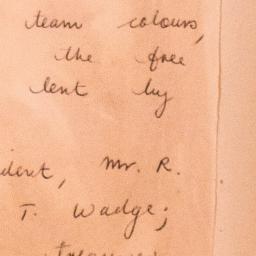 team colours,
the free
lent by
dent, Mr. R.
T. Wadge;